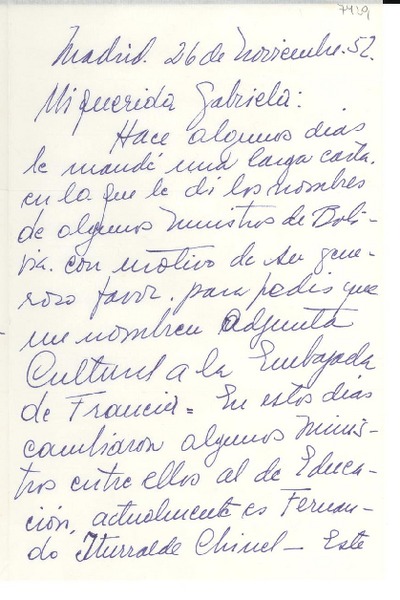 7419
Madrid. 26 de Noviembre. 52.
Mi querida Gabriela:
Hace algunos dias
le mandé una larga carta.
en la que le di los nombres
de algunos Ministros de Boli-
via. con motivo de su gene-
roso favor. para pedir que
me nombren Adjunta
Cultural a la Embajada
de Francia = En estos dias
cambiaron algunos Minis-
tros entre ellos al de Educa-
ción, actualmente es Fernan-
do Iturralde Chinel — Este